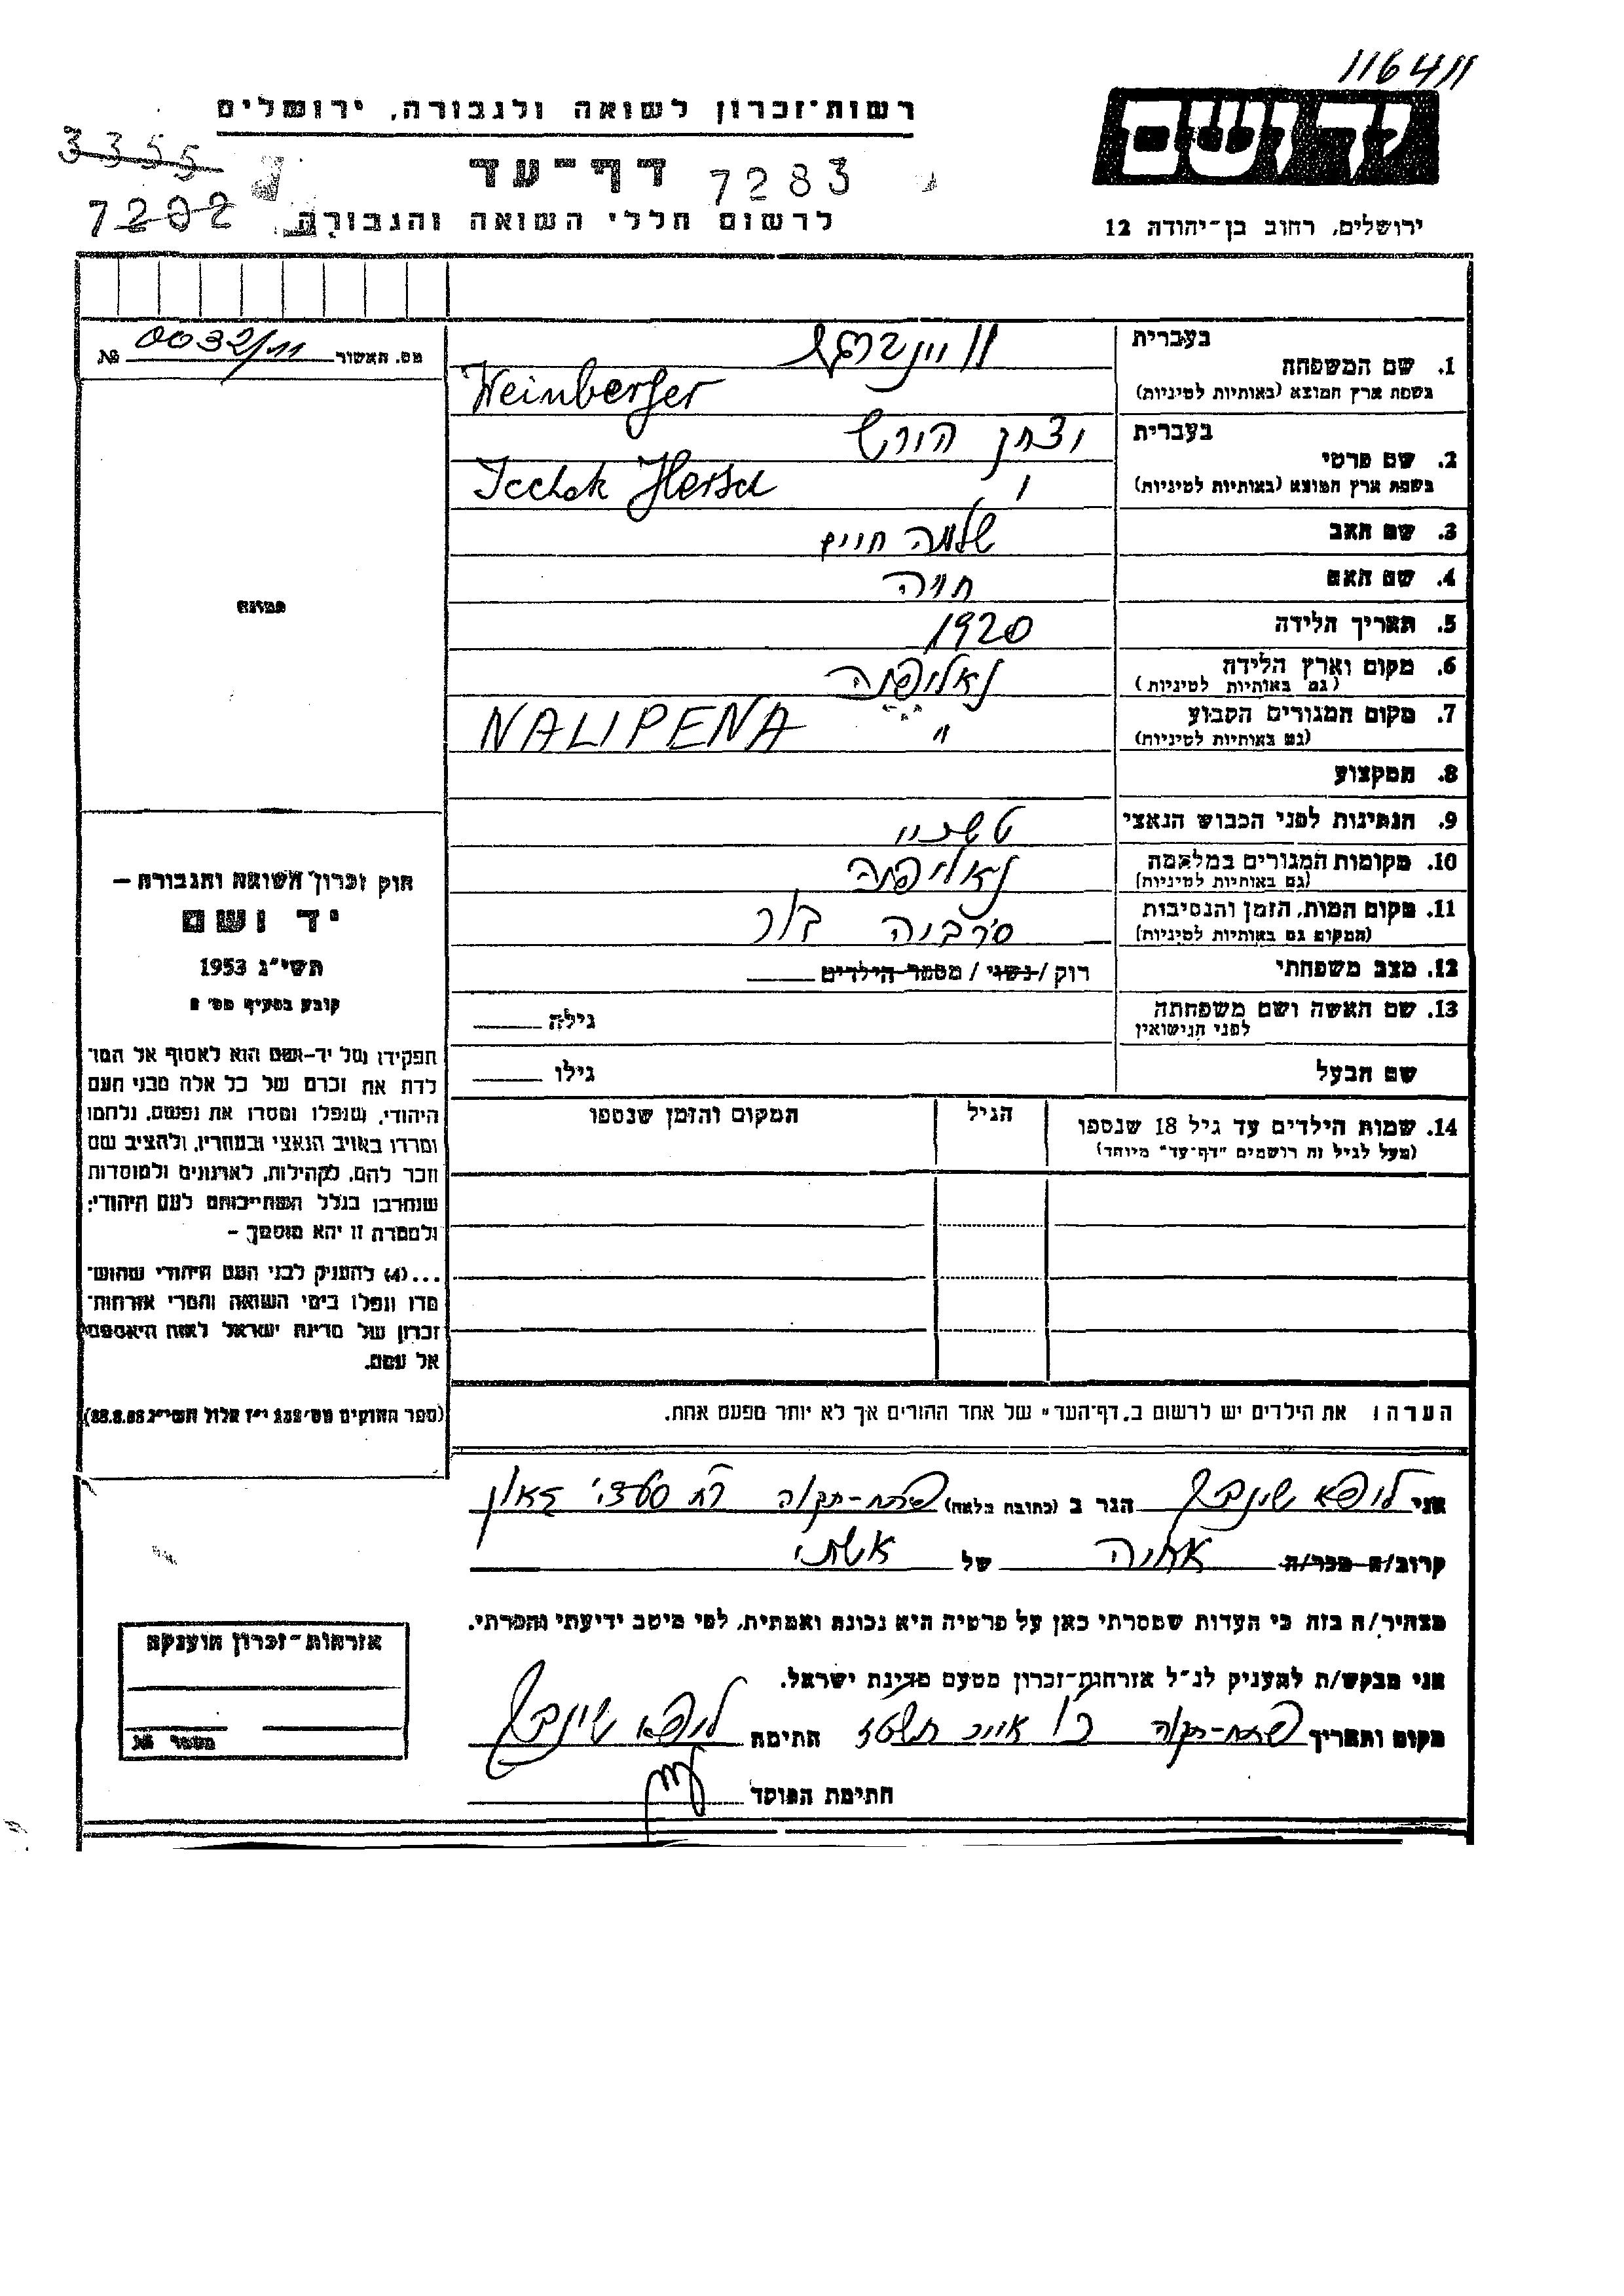 116411
יד ושם
ירושלים, רחוב בן-יהודה 12
רשות-זכרון לשואה ולגבורה, ירושלים
דף-עד
7283
3355
7282
לרשום חללי השואה והגבורה
מס. האשור 0032/11 №
בעברית
1. שם המשפחה
בשפת ארץ המוצא (באותיות לטיניות)
Weinberger
2. שם פרטי
בעברית יצחק הירש
בשפת ארץ המוצא (באותיות לטיניות)
Icchok Hersch
3. שם האב שלמה חיים
4. שם האם חיה
5. תאריך הלידה 1920
6. מקום וארץ הלידה
(גם באותיות לטיניות)
7. מקום המגורים הקבוע "
(גם באותיות לטיניות)
NALIPENA
8. המקצוע
9. הנתינות לפני הכבוש הנאצי
10. מקומות המגורים במלחמה
(גם באותיות לטיניות)
11. מקום המות, הזמן והנסיבות סרביה בור
(המקום גם באותיות לטיניות)
12. מצב משפחתי רוק / נשוי / מספר הילדים
13. שם האשה ושם משפחתה גילה
לפני הנישואין
שם הבעל גילו
14. שמות הילדים עד גיל 18 שנספו הגיל המקום והזמן שנספו
(מעל לגיל זה רושמים "דף-עד" מיוחד)
הערה: את הילדים יש לרשום ב"דף-העד" של אחד ההורים אך לא יותר מפעם אחת.
תמונה
חוק זכרון השואה והגבורה –
יד ושם
תשי"ג 1953
קובע בסעיף מס' 2
תפקידו של יד-ושם הוא לאסוף אל המו־
לדת את זכרם של כל אלה מבני העם
היהודי, שנפלו ומסרו את נפשם, נלחמו
ומרדו באויב הנאצי ובעוזריו, ולהציב שם
וזכר להם, לקהילות, לארגונים ולמוסדות
שנחרבו בגלל השתייכותם לעם היהודי;
ולמטרה זו יהא מוסמך –
...(4) להעניק לבני העם היהודי שהוש־
מדו ונפלו בימי השואה והמרי אזרחות־
זכרון של מדינת ישראל לאות היאספם
אל עמם.
(ספר החוקים מס' 132 י"ז אלול תשי"ג 28.8.53)
אני הגר ב (כתובת מלאה) פתח-תקוה רח סעדיה גאון
קרוב/ה מכר/ה אחיה של אשתי
מצהיר/ה בזה כי העדות שמסרתי כאן על פרטיה היא נכונה ואמתית, לפי מיטב ידיעתי והכרתי.
אני מבקש/ת להעניק לנ"ל אזרחות-זכרון מטעם מדינת ישראל.
מקום ותאריך פתח-תקוה חתימה
חתימת הפוקד
אזרחות-זכרון הוענקה
מספר №